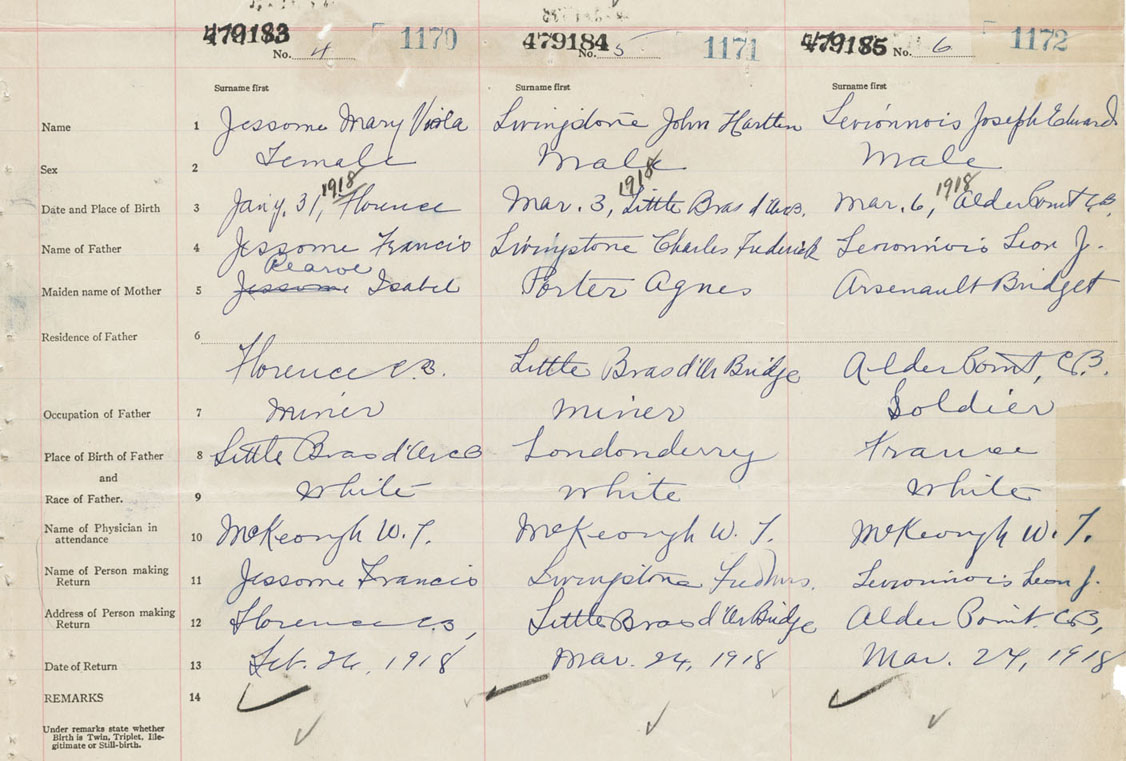 479183 No. 4 1170 479184 No. 5 1171 479185 No. 6 1172
Surname first Surname first Surname first
Name 1 Jessome Mary Viola Livingstone John Hartten Levionnois Joseph Edward
Sex 2 Female Male Male
1918 1918 1918
Date and Place of Birth 3 Jany. 31, Florence Mar. 3, Little Bras d'Or C.B. Mar. 6, Alder Point C.B.
Name of Father 4 Jessome Francis Livingstone Charles Frederick Levionnois Leon J.
Maiden name of Mother 5 Jessome Isabel Porter Agnes Arsenault Bridget
Residence of Father 6
Florence C.B. Little Bras d'Or Bridge Alder Point, C.B.
Occupation of Father 7 Miner Miner Soldier
Place of Birth of Father 8 Little Bras d'Or CB Londonderry France
and
Race of Father. 9 White White White
Name of Physician in attendance 10 McKeough W. T. McKeough W. T. McKeough W. T.
Name of Person making Return 11 Jessome Francis Livingstone Levionnois Leon J.
Address of Person making Return 12 Florence C.B, Little Bras d'Or Bridge Alder Point. C.B,
Date of Return 13 Feb. 26, 1918 Mar. 24, 1918 Mar. 24, 1918
REMARKS 14
Under remarks state whether
Birth is Twin, Triplet, Ille-
gitimate or Still-birth.